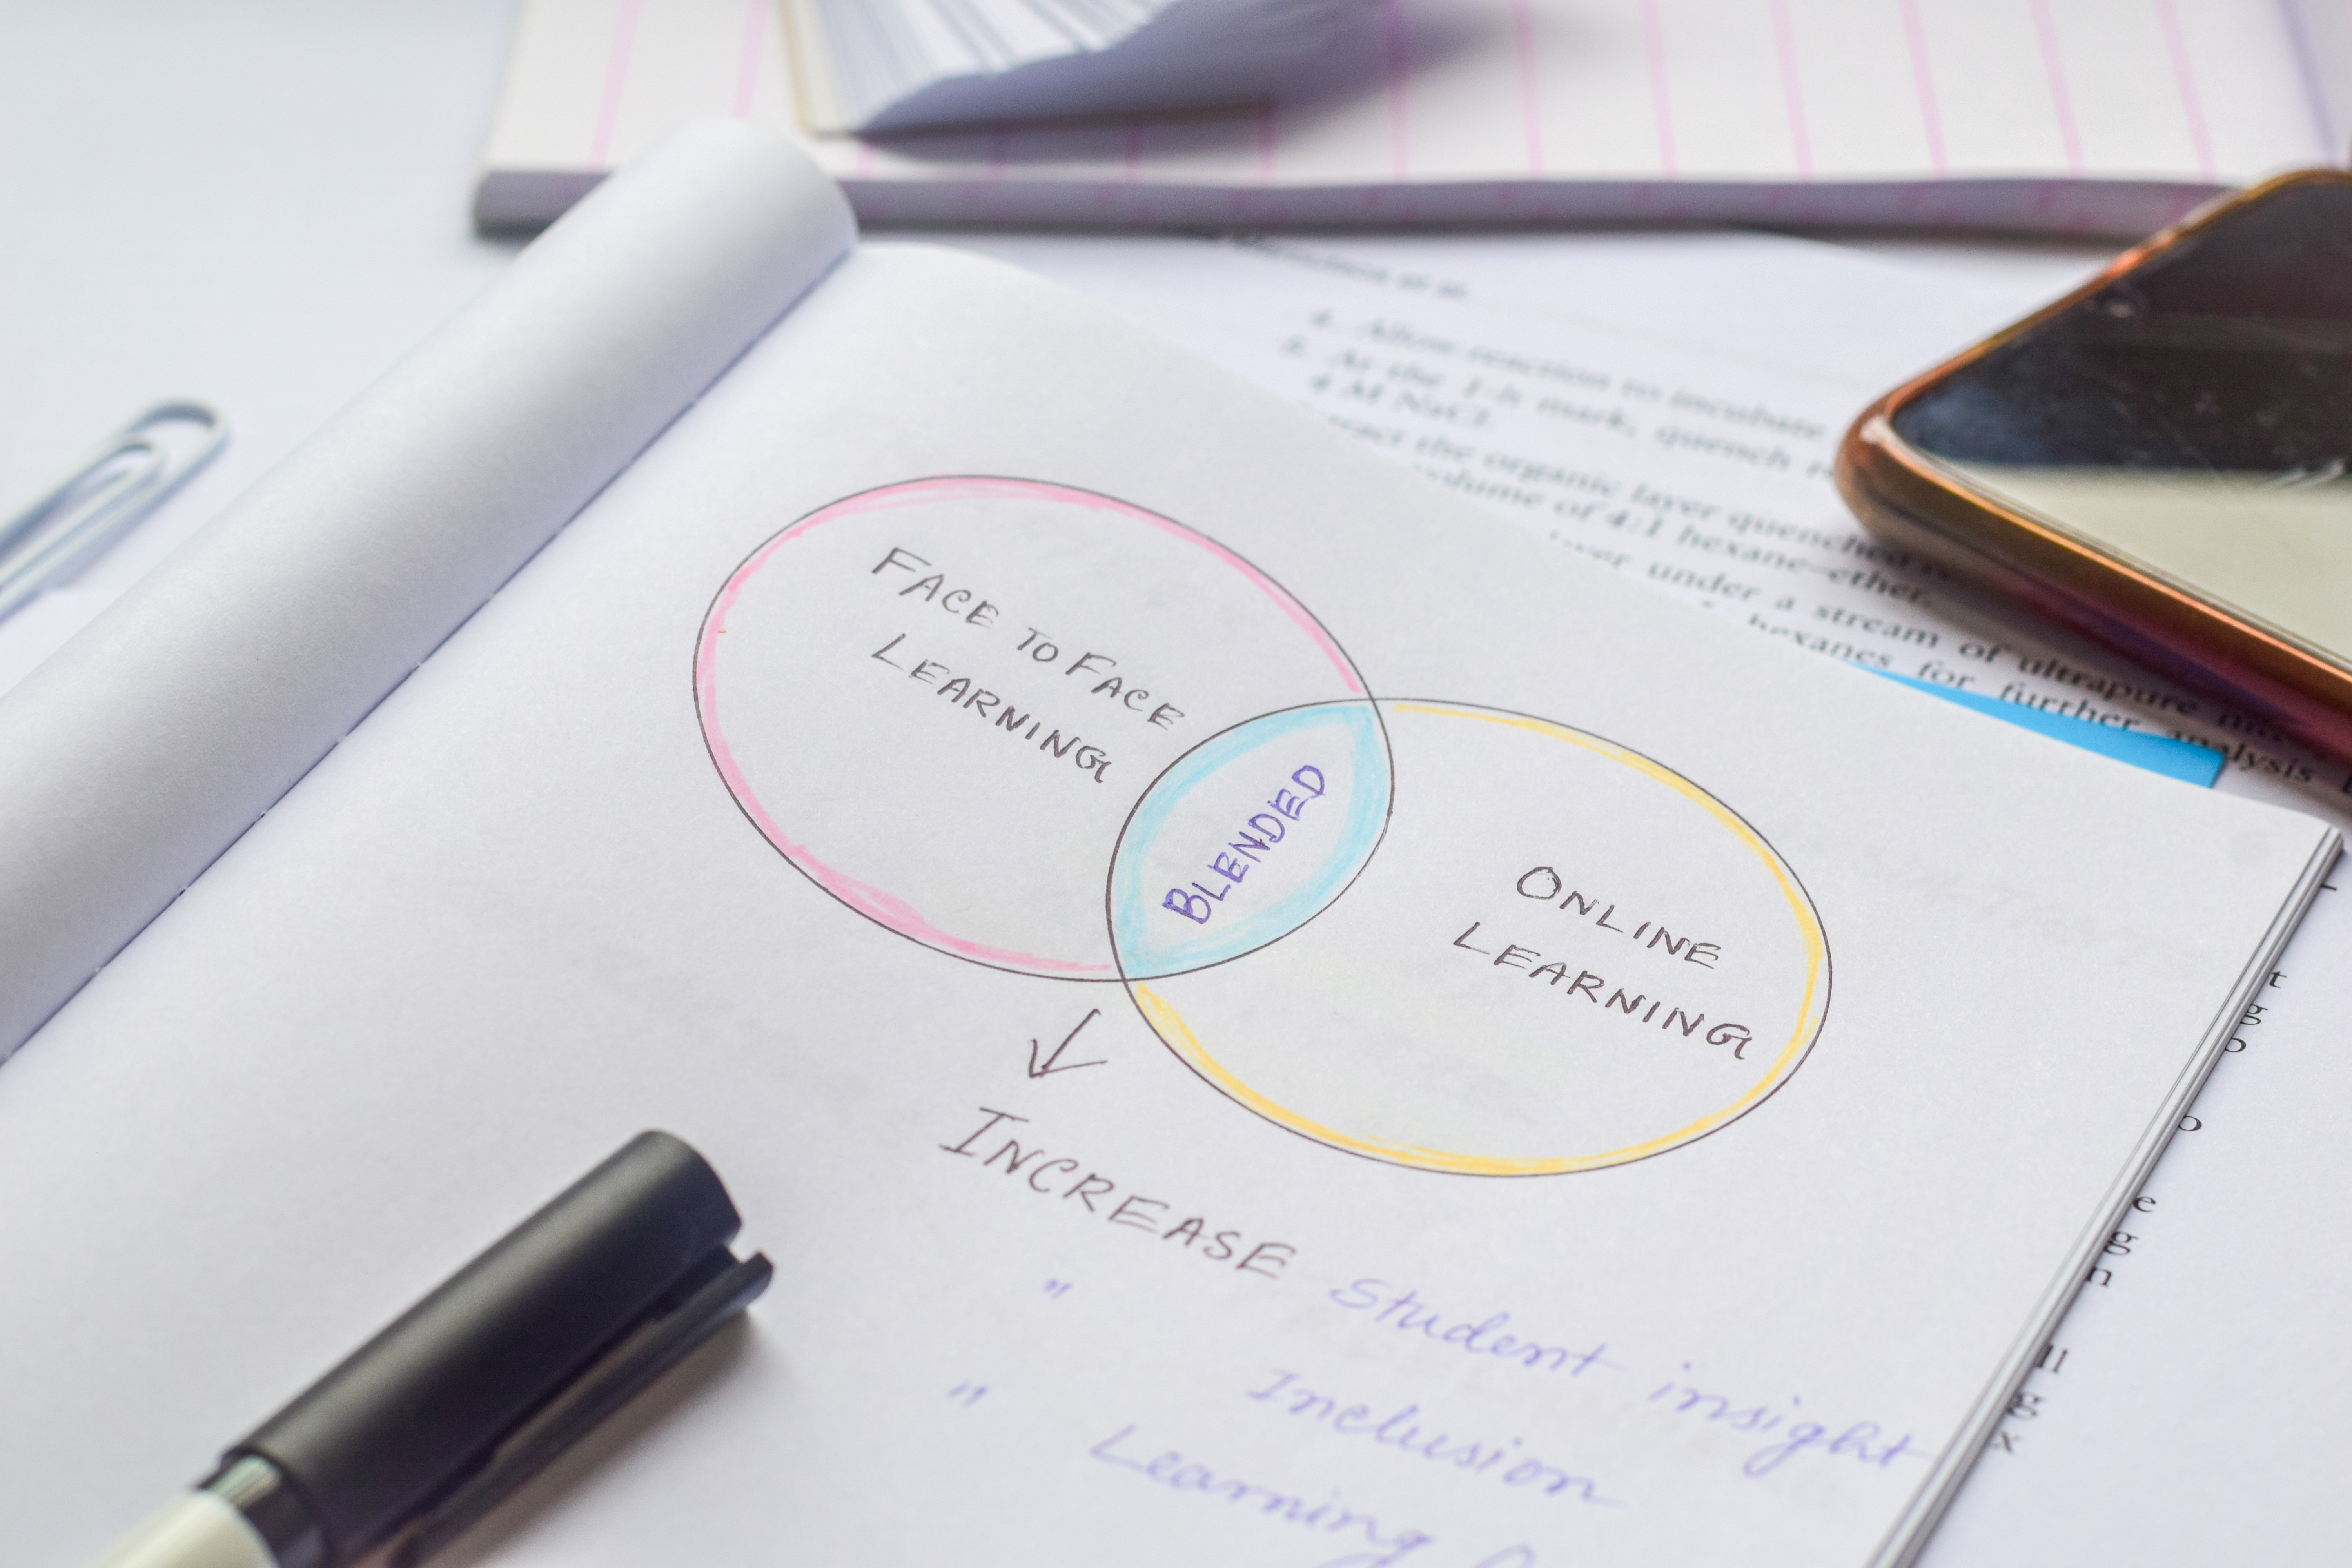 FACE TO FACE
LEARNING
BLENDED
ONLINE
LEARNING
↓
INCREASE Student insight
" Inclusion
" Learning
4. Allow reaction to incubate
5. At the 1-h mark, quench
4 M NaCl.
the organic layer quenched
volume of 4:1 hexane–ether.
under a stream of ultrapure
hexanes for further analysis
t
g
o
o
e
g
n
ll
g
x